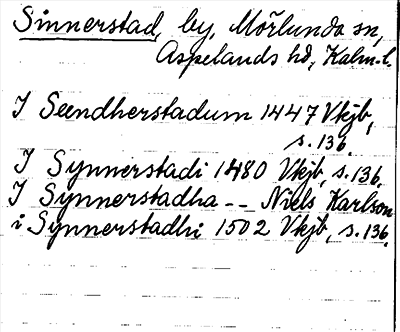 Sinnerstad, by, Mörlunda sn,
Aspelands hd, Kalm. l.
I Seendherstadum 1447 Vkjb,
s. 136.
I Synnerstadi 1480 Vkjb, s. 136.
I Synnerstadha -- Niels Karlson
i Synnerstadhi 1502 Vkjb, s. 136.